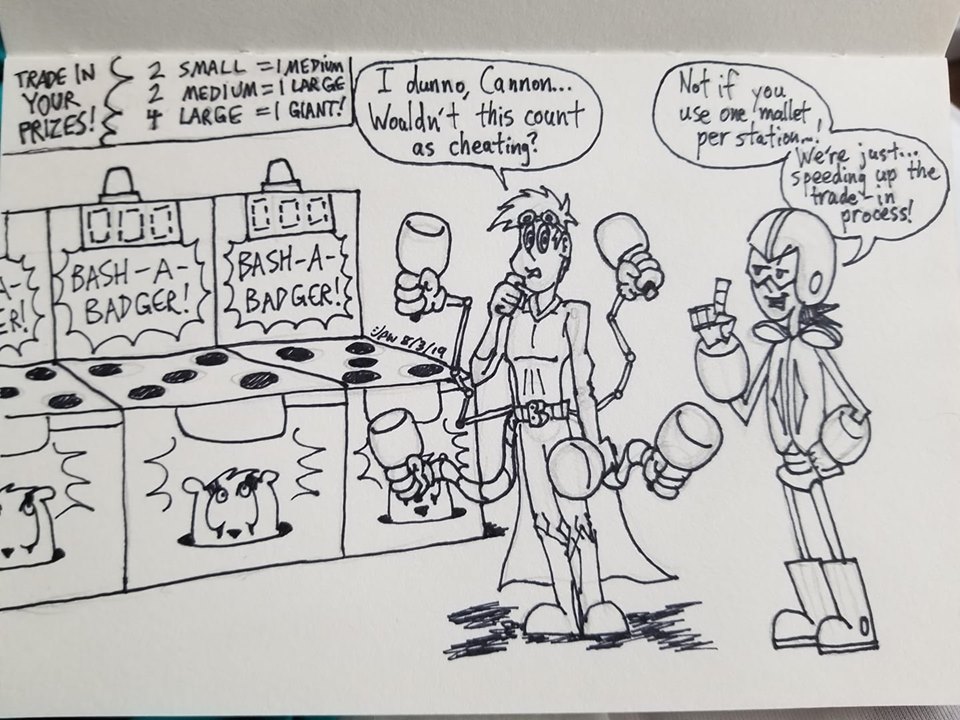 TRADE IN
YOUR
PRIZES!
2 SMALL = 1 MEDIUM
2 MEDIUM = 1 LARGE
4 LARGE = 1 GIANT!
I dunno, Cannon...
Wouldn't this count
as cheating?
Not if you
use one mallet
per station...!
We're just...
speeding up the
trade-in
process!
A-
ER!
BASH-A-
BADGER!
BASH-A-
BADGER!
000
000
:)PW 8/3/19